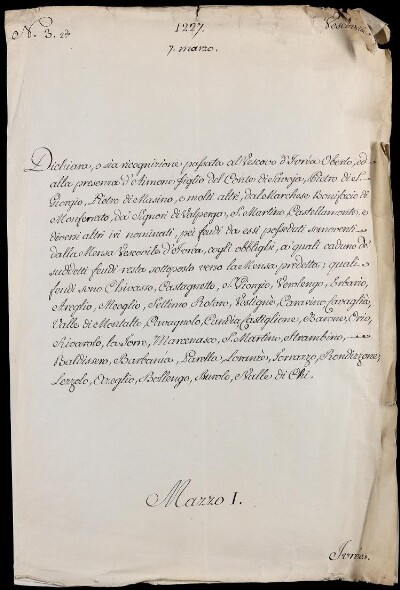 N. 3. 1227. Vescovado
7. marzo.
Dichiara, o sia ricognizione passata al Vescovo d'Ivrea Oberto, ed
alla presenza d'Aimone figlio del Conte di Savoja, Pietro di S.
Giorgio, Pietro di Masino, e molti altri, dal Marchese Bonifacio di
Monferrato, dai Signori di Valperga, S. Martino, Castellamonte, e
diversi altri ivi nominati, pei feudi da essi posseduti smoventi
dalla Mensa Vescovile d'Ivrea, cogli obblighi, a' quali caduno de'
suddetti feudi resta sottoposto verso la Mensa predetta; quali
feudi sono Chivasso, Castagneto, S. Giorgio, Verolengo,
Areglio, Moeglio, Settimo Rotaro, Vestignè, Caravino, Cavaglià,
Valle di Montalto, Cavagnolo, Candia, Castiglione, Barone, Orio,
Rivarolo, la Torre, Mercenasco, S. Martino, Strambino,
Baldissero, Barbania, Parella, Loranzè, Torrazzo, Rondizzone,
Lezzolo, Azeglio, Bollengo, Burolo, e Valle di Chi.
Mazzo I.
Ivrea.